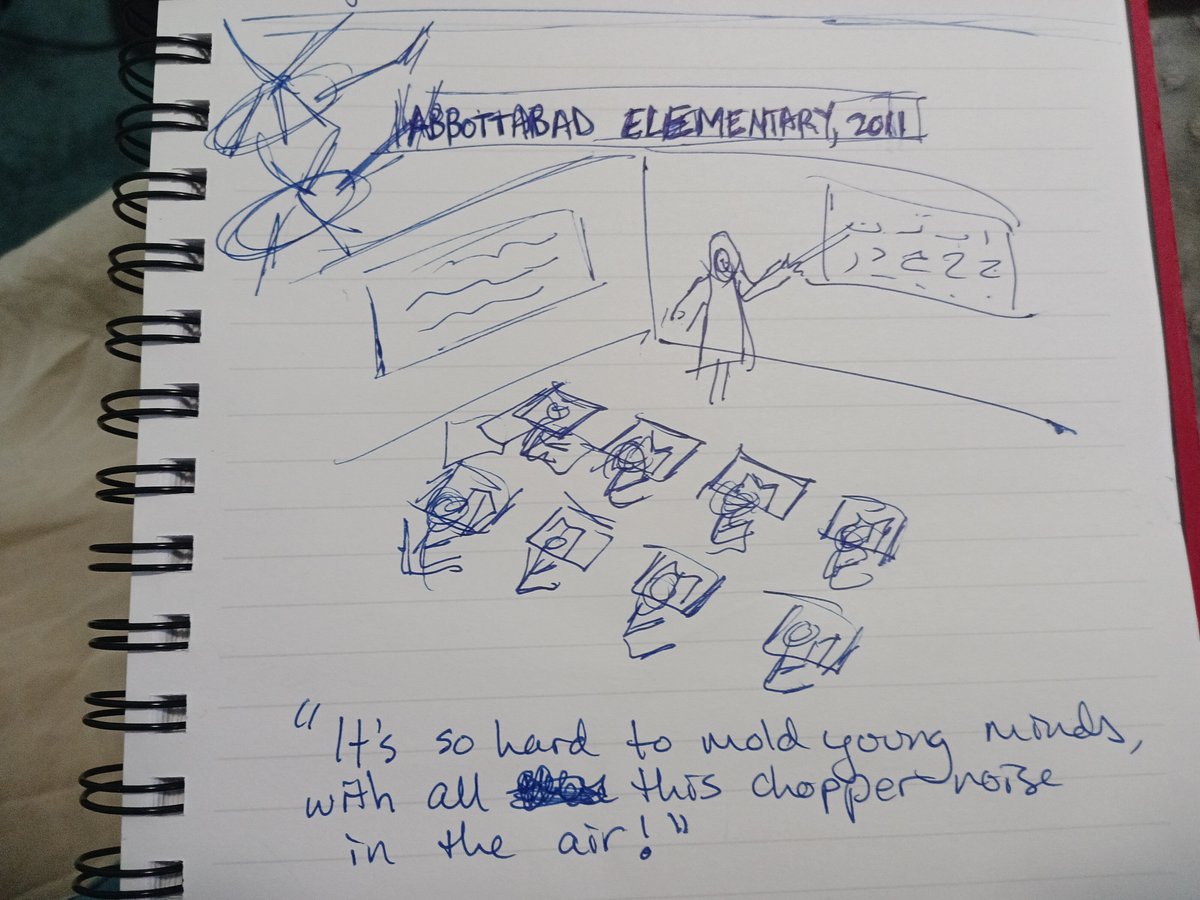 ABBOTTABAD ELEMENTARY, 2011
"It's so hard to mold young minds,
with all this chopper noise
in the air!"